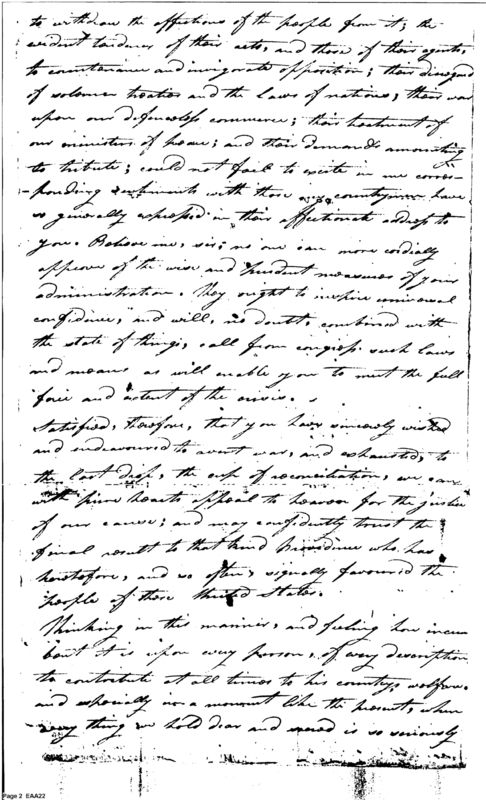 to withdraw the affections of the people from it; the
evident tendency of their acts, and those of their agents,
to countenance and invigorate opposition; their disregard
of solemn treaties and the laws of nations; their war
upon our defenceless commerce; their treatment of
our ministers of peace; and their demands amounting
to tribute; could not fail to excite in me corres-
ponding sentiments with those my countrymen have
so generally expressed in their affectionate address to
you. Believe me, sir; no one can more cordially
approve of the wise and prudent measures of your
administration. They ought to inspire universal
confidence, and will, no doubt, combined with
the state of things, call from congress such laws
and means as will enable you to meet the full
force and extent of the crisis.
Satisfied, therefore, that you have sincerely wished
and endeavoured to avert war, and exhausted, to
the last drop, the cup of reconciliation, we can
with pure hearts appeal to heaven for the justice
of our cause; and may confidently trust the
final result to that kind Providence who has
heretofore, and so often, signally favoured the
people of these United States.
Thinking in this manner, and feeling how incum
bent it is upon every person, of every description
to contribute at all times to his countrys welfare,
and especially in a moment like the present, when
every thing we hold dear and sacred is so seriously
Page 2 EAA22